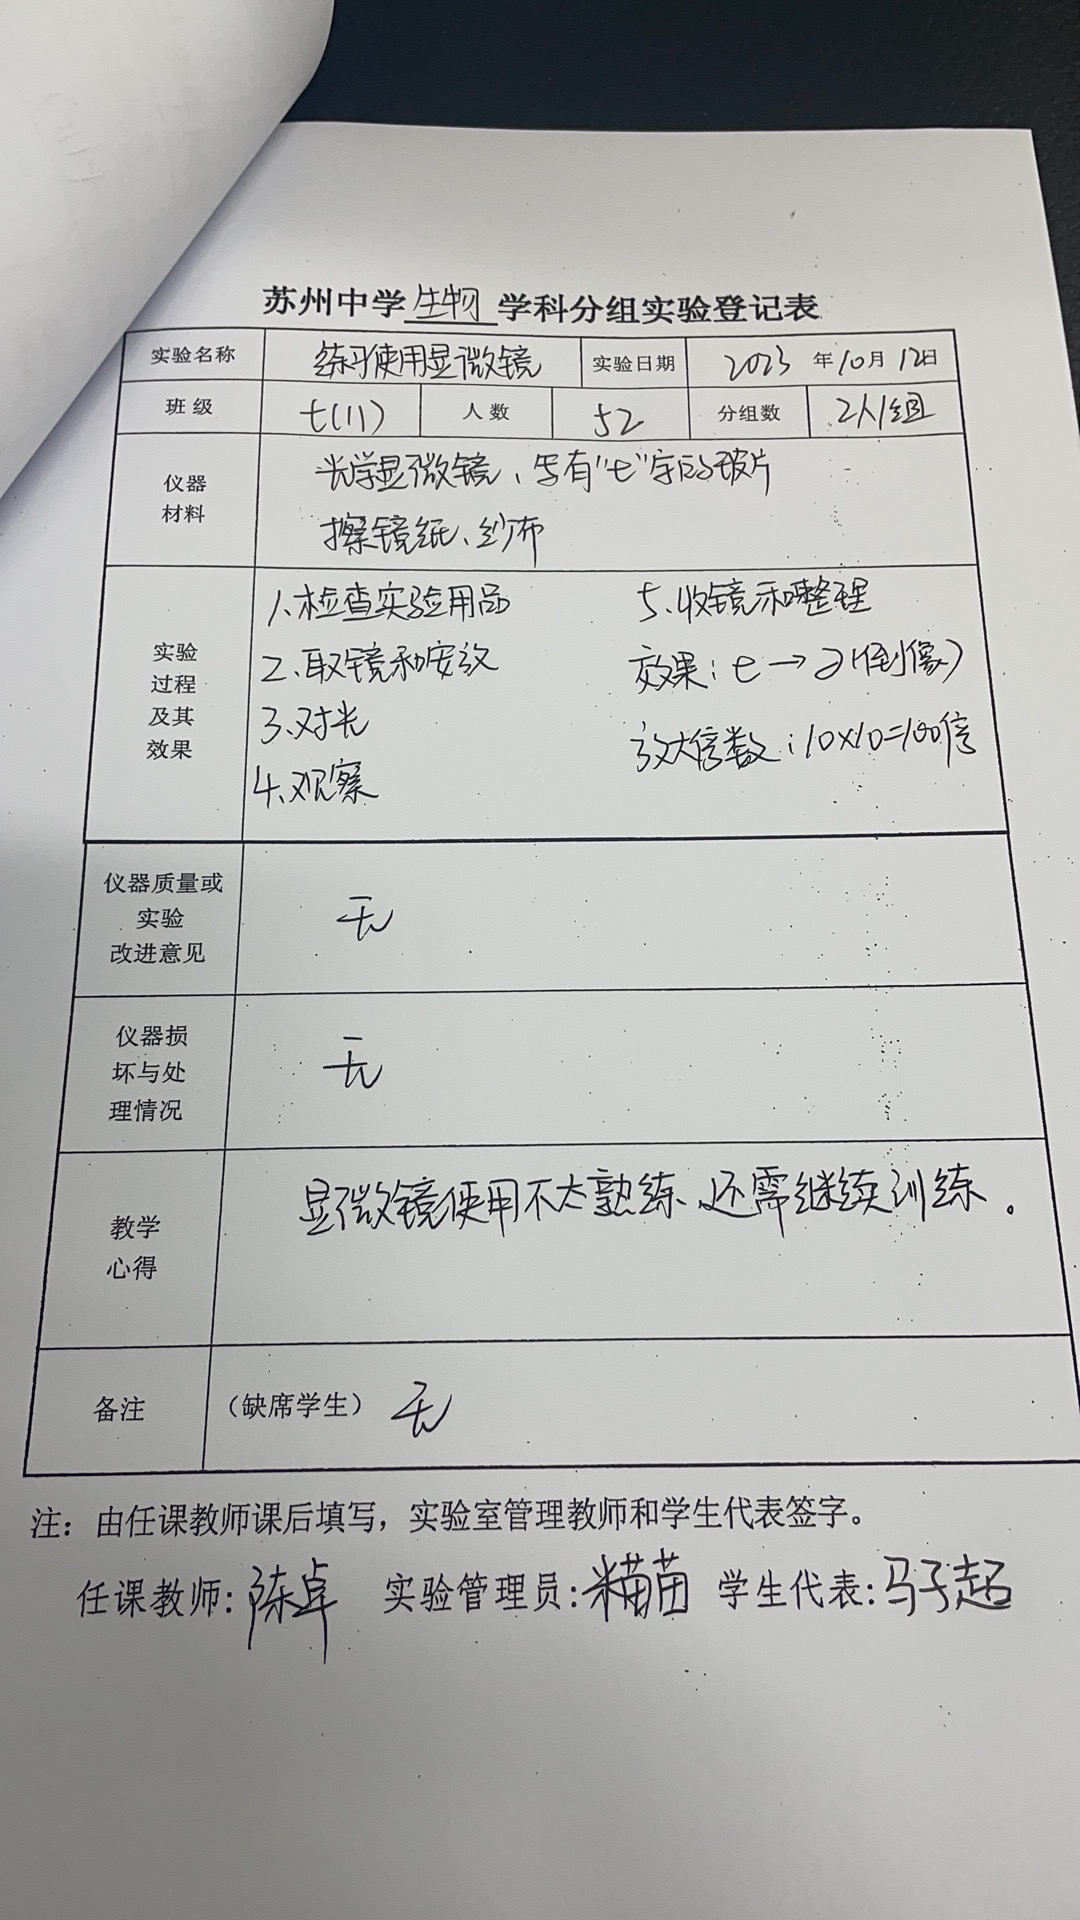 苏州中学生物学科分组实验登记表
实验名称 练习使用显微镜 实验日期 2023年10月12日
班级 七(11) 人数 52 分组数 2人1组
仪器
材料
光学显微镜、写有"七"字的玻片
擦镜纸、纱布
实验
过程
及其
效果
1.检查实验用品
2.取镜和安放
3.对光
4.观察
5.收镜和整理
效果:七→(倒像)
放大倍数:10×10=100倍
仪器质量或
实验
改进意见
无
仪器损
坏与处
理情况
无
教学
心得
显微镜使用不太熟练、还需继续训练。
备注
(缺席学生) 无
注:由任课教师课后填写,实验室管理教师和学生代表签字。
任课教师:陈卓 实验管理员: 学生代表:马子超